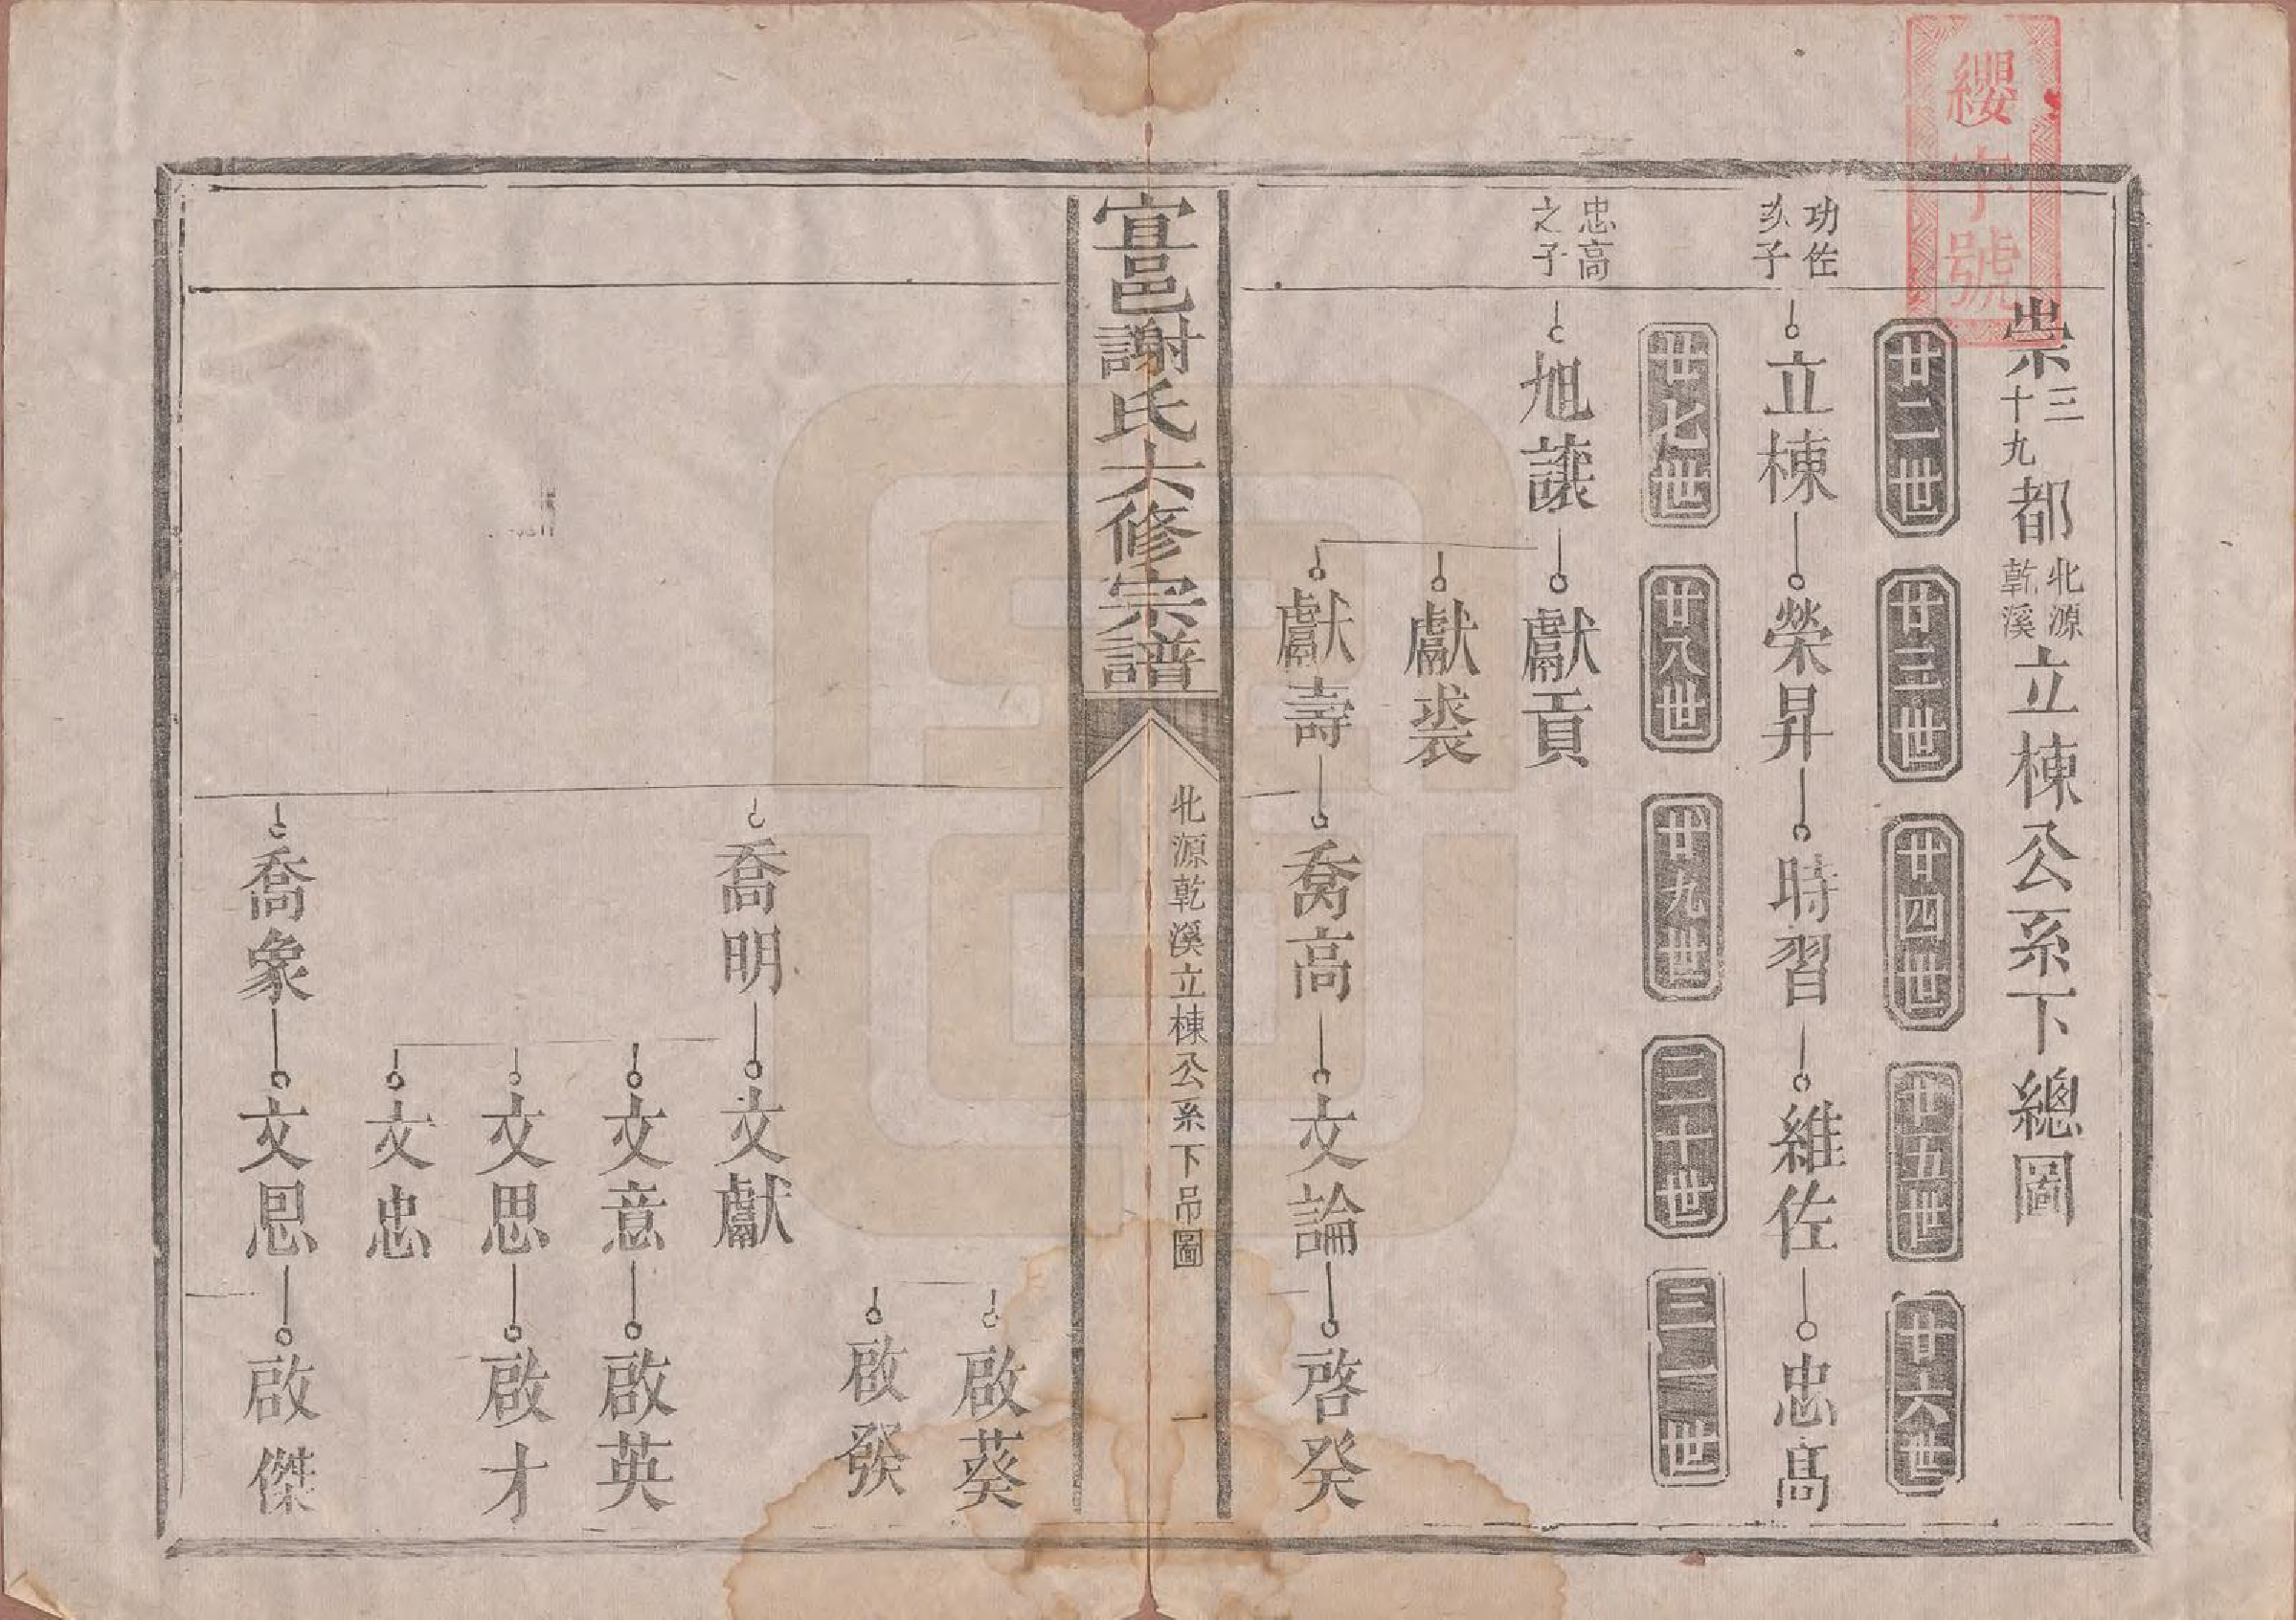 纓字號
崇三十九都北源乾溪立棟公系下總圖
廿二世 廿三世 廿四世 廿五世 廿六世
功佐次子
立棟 榮昇 時習 維佐 忠高
廿七世 廿八世 廿九世 三十世 三一世
忠高之子
旭議 獻貢
獻裘
獻壽 喬高 文論 啓癸
宜邑謝氏六修宗譜 北源乾溪立棟公系下吊圖 一
啟葵
啟發
喬明 文獻
文意 啟英
文思 啟才
文忠
喬象 文恩 啟傑